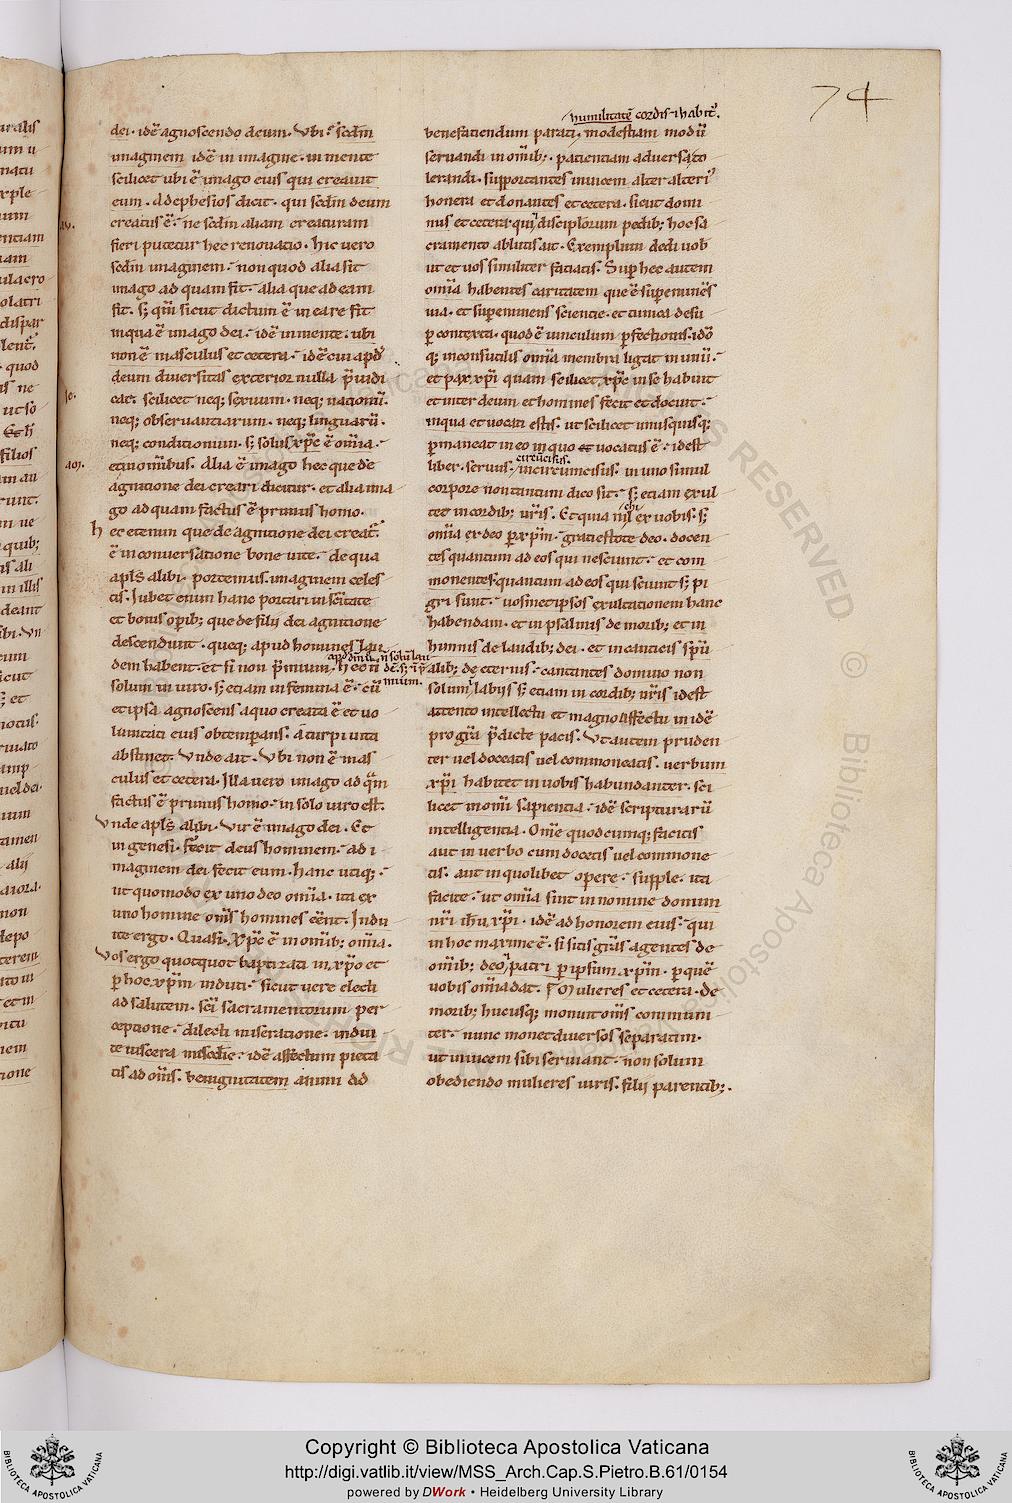 74
dei · idē agnoscendo deum · Vbi · scd̄m
imaginem idē in imagine · in mente
scilicet ubi ē imago eius qui creauit
eum · Ad ephesios dicit · qui scd̄m deum
creatus ē · ne scd̄m aliam creaturam
fieri putetur hec renouatio · hic uero
scd̄m imaginem · non quod alia sit
imago ad quam fit · alia que ad eam
fit · s; qm̄ sicut dictum ē in ea re fit
in qua ē imago dei · idē in mente · ubi
non ē masculus et cetera · idē cui apd̄
deum diuersitas exterior nulla p̄iudi
cat · scilicet neq; sexuum · neq; nationū ·
neq; obseruantiarum · neq; linguarū ·
neq; conditionum · s; solus xp̄c ē om̄ia ·
et in om̄ibus · Alia ē imago hec que de
agnitione dei creari dicitur · et alia ima
go ad quam factus ē primus homo ·
hec etenim que de agnitione dei creat̄
ē in conuersatione bone uite · de qua
apl̄s alibi · portemus imaginem celes
tis · Iubet enim hanc portari in sc̄itate
et bonis opib; que de filij dei agnitione
descendunt · queq; apud homines lau
dem habent · et si non p̄mium · h̄ et ī
apd̄ dm̄
mium ·
solum in uiro · s; etiam in femina ē · cū
et ipsa agnoscens a quo creata ē et uo
luntati eius obtemperans · a turpi uita
abstinet · Vnde ait · Vbi non ē mas
culus et cetera · Illa uero imago ad qm̄
factus ē primus homo · in solo uiro est ·
Vnde apl̄s alibi · Vir ē imago dei · Et
in genesi · fecit deus hominem · ad i
maginem dei fecit eum · hanc utiq;
ut quomodo ex uno deo om̄ia · ita ex
uno homine om̄s homines eēnt · Indu
ite ergo · Quasi · Xp̄c ē in om̄ib; om̄ia ·
Vos ergo quotquot baptizati in xp̄o et
p hoc xp̄m induti · sicut uere electi
ad salutem · sc̄i sacramentorum per
ceptione · dilecti miseratione · indui
te uiscera misc̄die · idē affectum pieta
tis ad om̄s · benignitatem animi ad
humilitatē cordis
benefatiendum parati · modestiam modū
seruandi in om̄ib; · patientiam aduersa to
lerandi · supportantes inuicem alter alteri
honera et donantes et cetera · sicut domi
nus et cetera · qui disciplorum pedib; hoc sa
cramento ablutis ait · Exemplum dedi uob
ut et uos similiter faciatis · Sup hec autem
om̄ia habentes caritatem que ē supeminēs
uia · et supeminens scientie · et tunica desu
p contexta · quod ē uinculum pfectionis · idē
q; inconsutilis om̄ia membra ligat in unū ·
et pax xp̄i quam scilicet xp̄c in se habuit
et inter deum et homines fecit et docuit ·
in qua et uocati estis · ut scilicet unusquisq;
pmaneat in eo in quo uocatus ē · idest
circūcisus ·
liber · seruus · incircumcisus · in uno simul
corpore non tantum dico sit · s; etiam exul
tet in cordib; ur̄is · Et quia nil ex uobis · s;
om̄ia ex deo p xp̄m · grati estote deo · docen
tes quantum ad eos qui nesciunt · et com
monentes quantum ad eos qui sciunt s; pi
gri sunt · uosmetipsos exultationem hanc
habendam · et in psalmis de morib; et in
himnis de laudib; dei · et in canticis sp̄u
alib; de eternis · cantantes domino non
solum labijs s; etiam in cordib; ur̄is idest
attento intellectu et magno affectu in idē
pro gr̄a p̄dicte pacis · Vt autem pruden
ter uel doceatis uel commoneatis · uerbum
xp̄i habitet in uobis habundanter · sci
licet in om̄i sapientia · idē scripturarū
intelligentia · Om̄e quodcumq; facitis
aut in uerbo cum docetis uel commone
tis · aut in quolibet opere · supple · ita
facite · ut om̄ia sint in nomine domini
nr̄i ih̄u xp̄i · idē ad honorem eius · qui
in hoc maxime ē · si sitis gr̄as agentes de
om̄ib; deo patri p ipsum xp̄m · p quē
uobis om̄ia dat · Mulieres et cetera · de
morib; hucusq; monuit om̄s communi
ter · nunc monet diuersos separatim ·
ut inuicem sibi seruiant · non solum
obediendo mulieres uiris · filij parentib; ·
Copyright © Biblioteca Apostolica Vaticana
http://digi.vatlib.it/view/MSS_Arch.Cap.S.Pietro.B.61/0154
powered by DWork • Heidelberg University Library
BIBLIOTECA APOSTOLICA VATICANA
BIBLIOTECA APOSTOLICA VATICANA